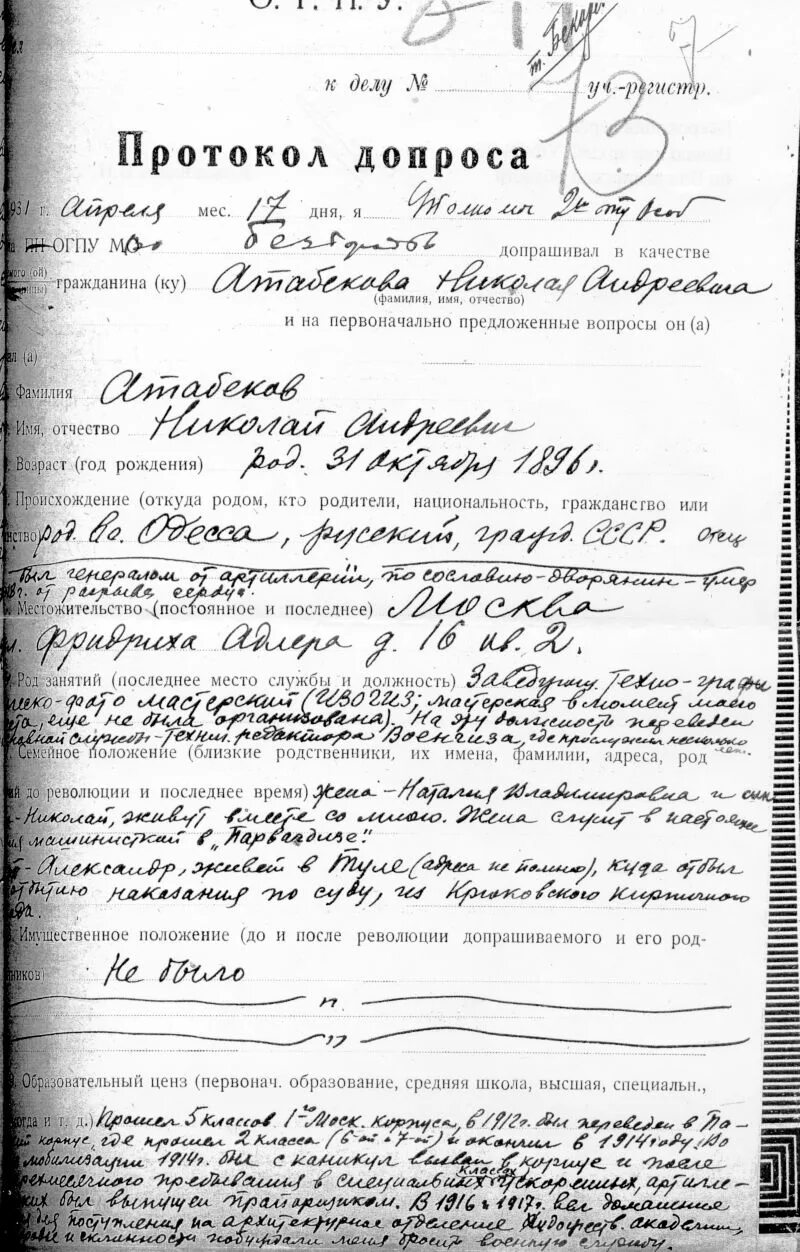 О. Г. П. У.
т. Бекаре
7-
13
к делу № уч.-регистр.
Протокол допроса
1931 г. Апреля мес. 17 дня, я 2го отд Особ
ПП ОГПУ МО допрашивал в качестве
гражданина (ку) Атабекова Николая Андреевича
(фамилия, имя, отчество)
и на первоначально предложенные вопросы он (а)
ал (а)
Фамилия Атабеков
Имя, отчество Николай Андреевич
Возраст (год рождения) род. 31 октября 1896 г.
Происхождение (откуда родом, кто родители, национальность, гражданство или
нство) род. в г. Одесса, русский, гражд. СССР. Отец
был генералом от артиллерии, по сословию-дворянин-умер
г. от разрыва сердца.
Местожительство (постоянное и последнее) Москва
ул. Фридриха Адлера д. 16 кв. 2.
Род занятий (последнее место службы и должность) Заведующ. Техно-графи
ческо-фото мастерский (ИЗОГИЗ; мастерская в момент моего
еще не была организована). На эту должность переведен
службы-Технич. редактора Военгиза, где прослужил несколько
лет.
Семейное положение (близкие родственники, их имена, фамилии, адреса, род
й до революции и последнее время) жена-Наталия Владимировна и сын
-Николай, живут вместе со мною. Жена служит в настоящее
я машинисткой в „Партиздізе".
т-Александр, живет в Туле (адреса не помню), куда отбыл
отбытию наказания по суду, из Крюковского кирпичного
да.
Имущественное положение (до и после революции допрашиваемого и его род-
нников) Не было
"
"
Образовательный ценз (первонач. образование, средняя школа, высшая, специальн.,
огда и т. д.) Прошел 5 классов 1го Моск. корпуса, в 1912 г. был переведен в Па-
ий корпус, где прошел 2 класса (6-ой и 7-ой) и окончил в 1914 году. По
мобилизации 1914 г. был с каникул вызван в корпус и после
рехмесячного пребывания в специальных классах ускоренных, артилле-
ких был выпущен прапорщиком. В 1916 и 1917 г. вел домашния
для поступления на архитектурное отделение Художеств. академии,
и склонности побуждали меня бросить военную службу.